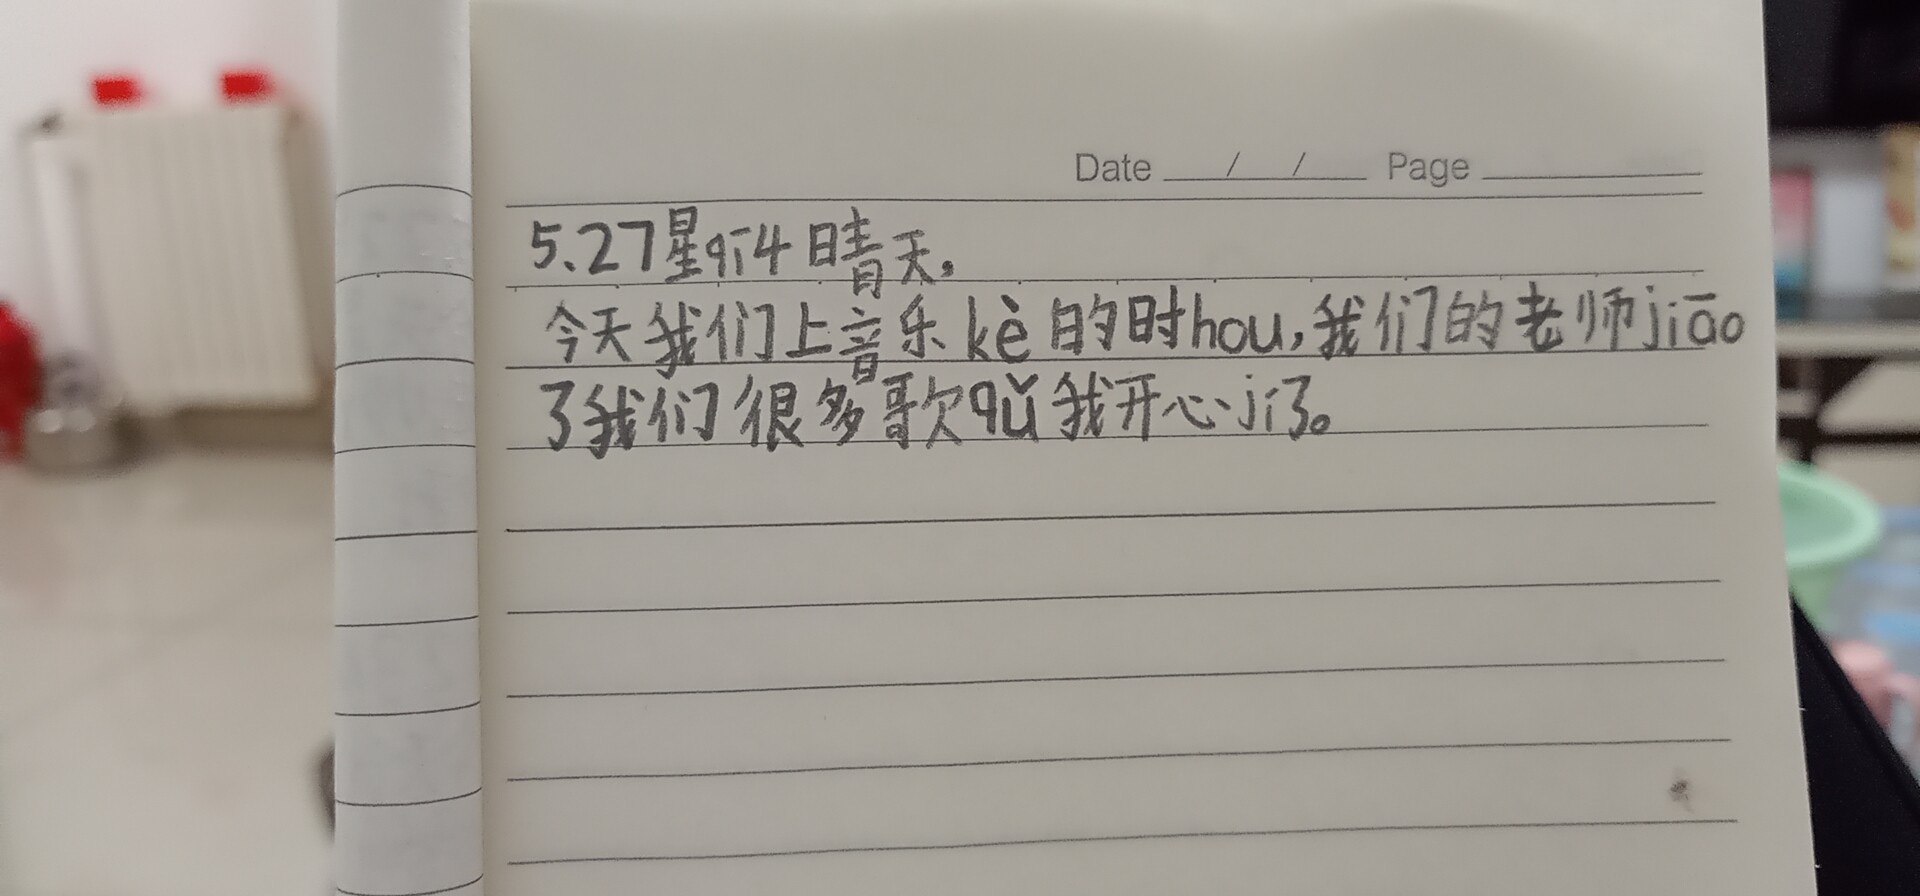 Date / / Page
5.27星qī4 晴天.
今天我们上音乐kè的时hou,我们的老师jiāo
了我们很多歌qǔ我开心jí了。